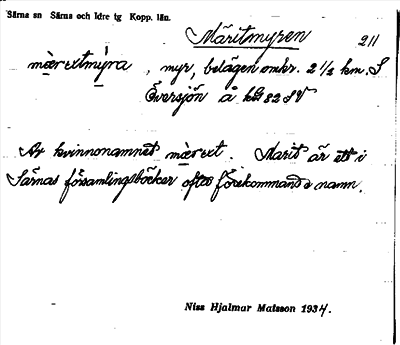 Särna sn Särna och Idre tg Kopp. län.
Märitmyren 211
mærɛtmýra, myr, belägen omkr. 2 1/2 km. S
Översjön å kbl 82 SV
Av kvinnonamnet mærɛt. Marit är ett i
Särnas församlingsböcker ofta förekommande namn.
Niss Hjalmar Matsson 1934.